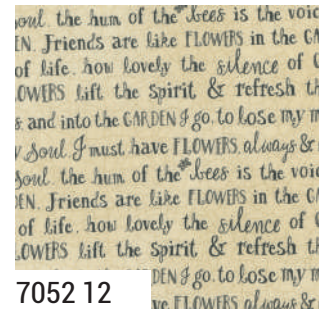 soul. the hum of the bees is the voic
EN. Friends are like FLOWERS in the GA
of life. how lovely the silence of G
OWERS lift the spirit & refresh th
& and into the GARDEN I go. to lose my m
Soul. I must have FLOWERS, always &
Soul. the hum of the bees is the voic
EN. Friends are like FLOWERS in the G
of life. how lovely the silence of
LOWERS lift the spirit & refresh th
DEN I go. to lose my m
7052 12
ve FLOWERS always &